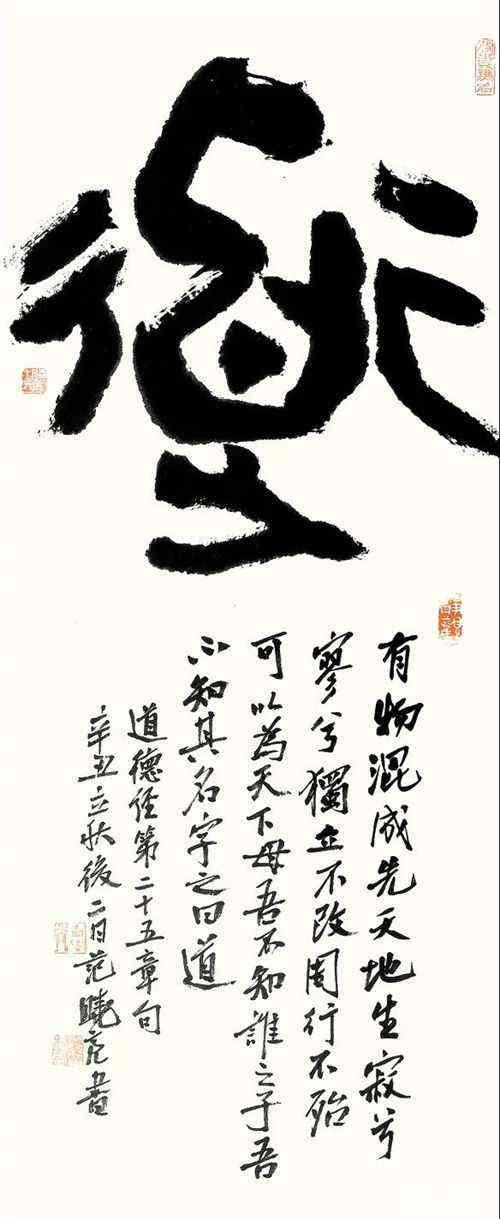 道
有物混成先天地生寂兮
寥兮獨立不改周行不殆
可以為天下母吾不知誰之子吾
不知其名字之曰道
道德经第二十五章句
辛丑立秋後二日范晓亮書